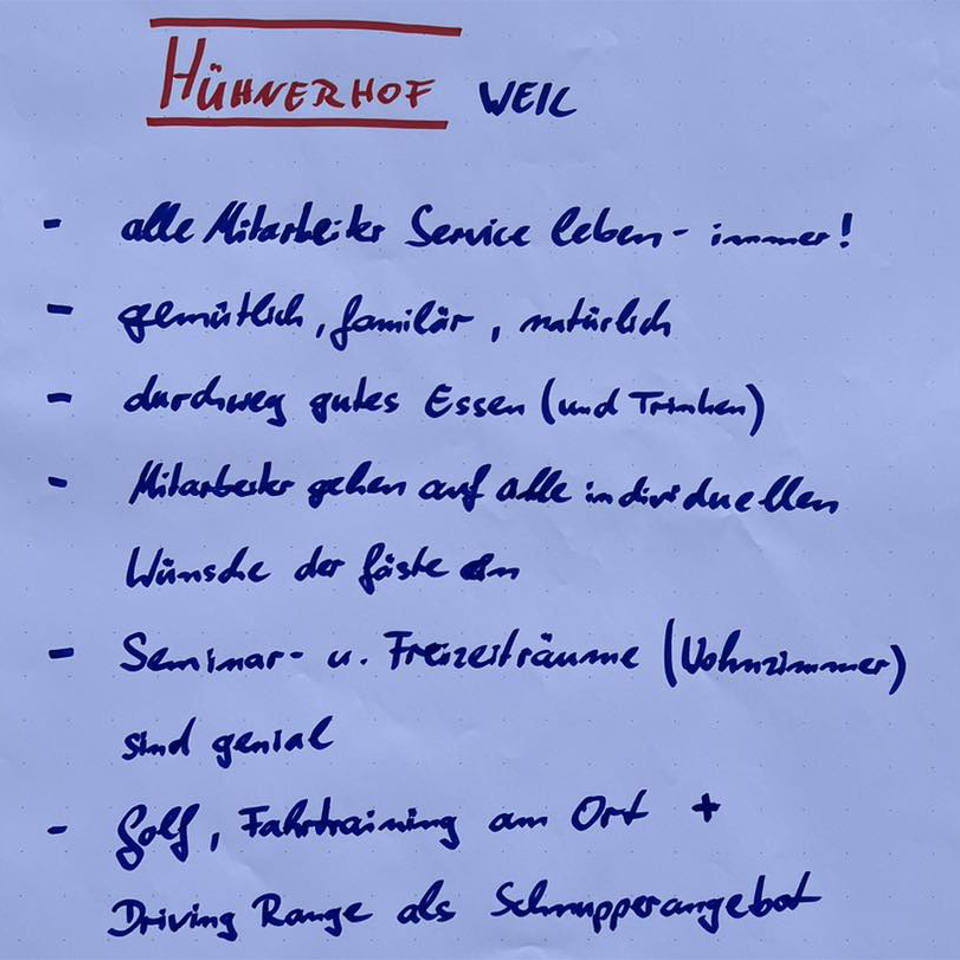 HÜHNERHOF WEIL
- alle Mitarbeiter Service leben - immer!
- gemütlich, familär, natürlich
- durchweg gutes Essen (und Trinken)
- Mitarbeiter gehen auf alle individuellen
Wünsche der Gäste ein
- Seminar- u. Freizeiträume (Wohnzimmer)
sind genial
- Golf, Fahrtraining am Ort +
Driving Range als Schnupperangebot